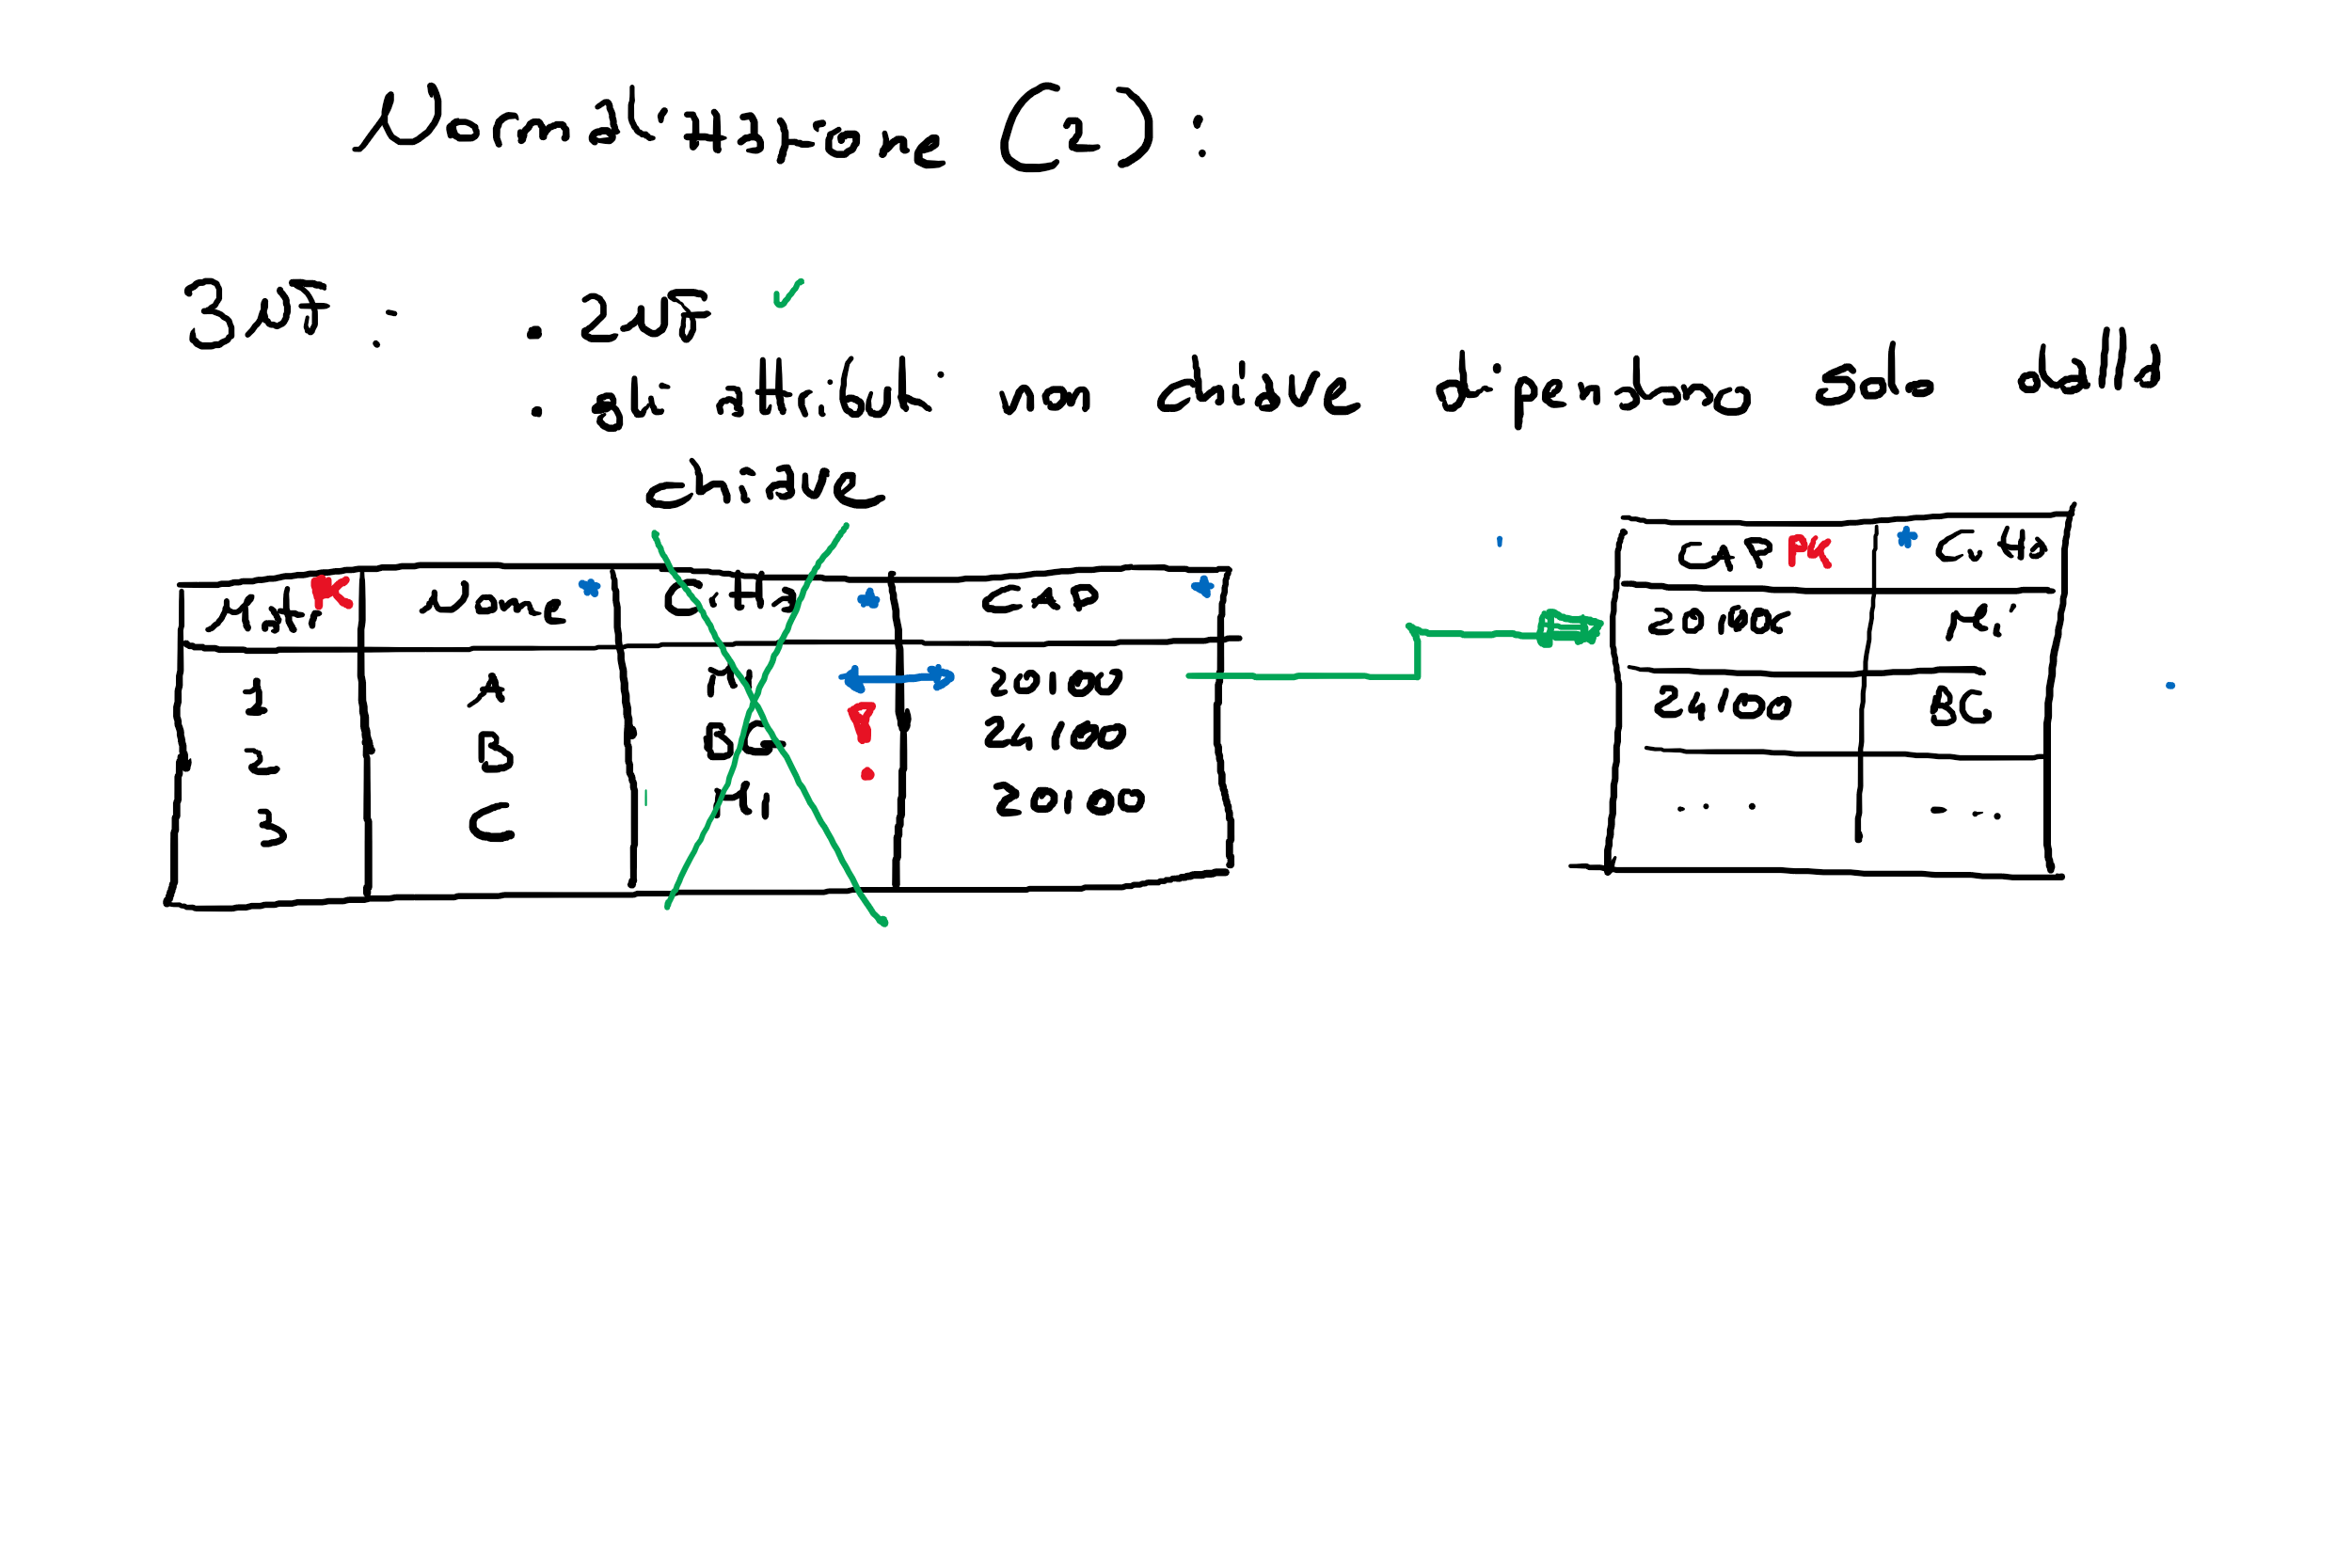 Normalizzazione (2):
3NF: . 2NF ✓
. gli attributi non chiave dipendano solo dalla
chiave
Matr PK Nome * Città * CAP *
1 A Mi 20100
2 B BG 24100
3 C Mi 20100
!
CAP PK * Città
20100 Mi
24100 BG
... ...